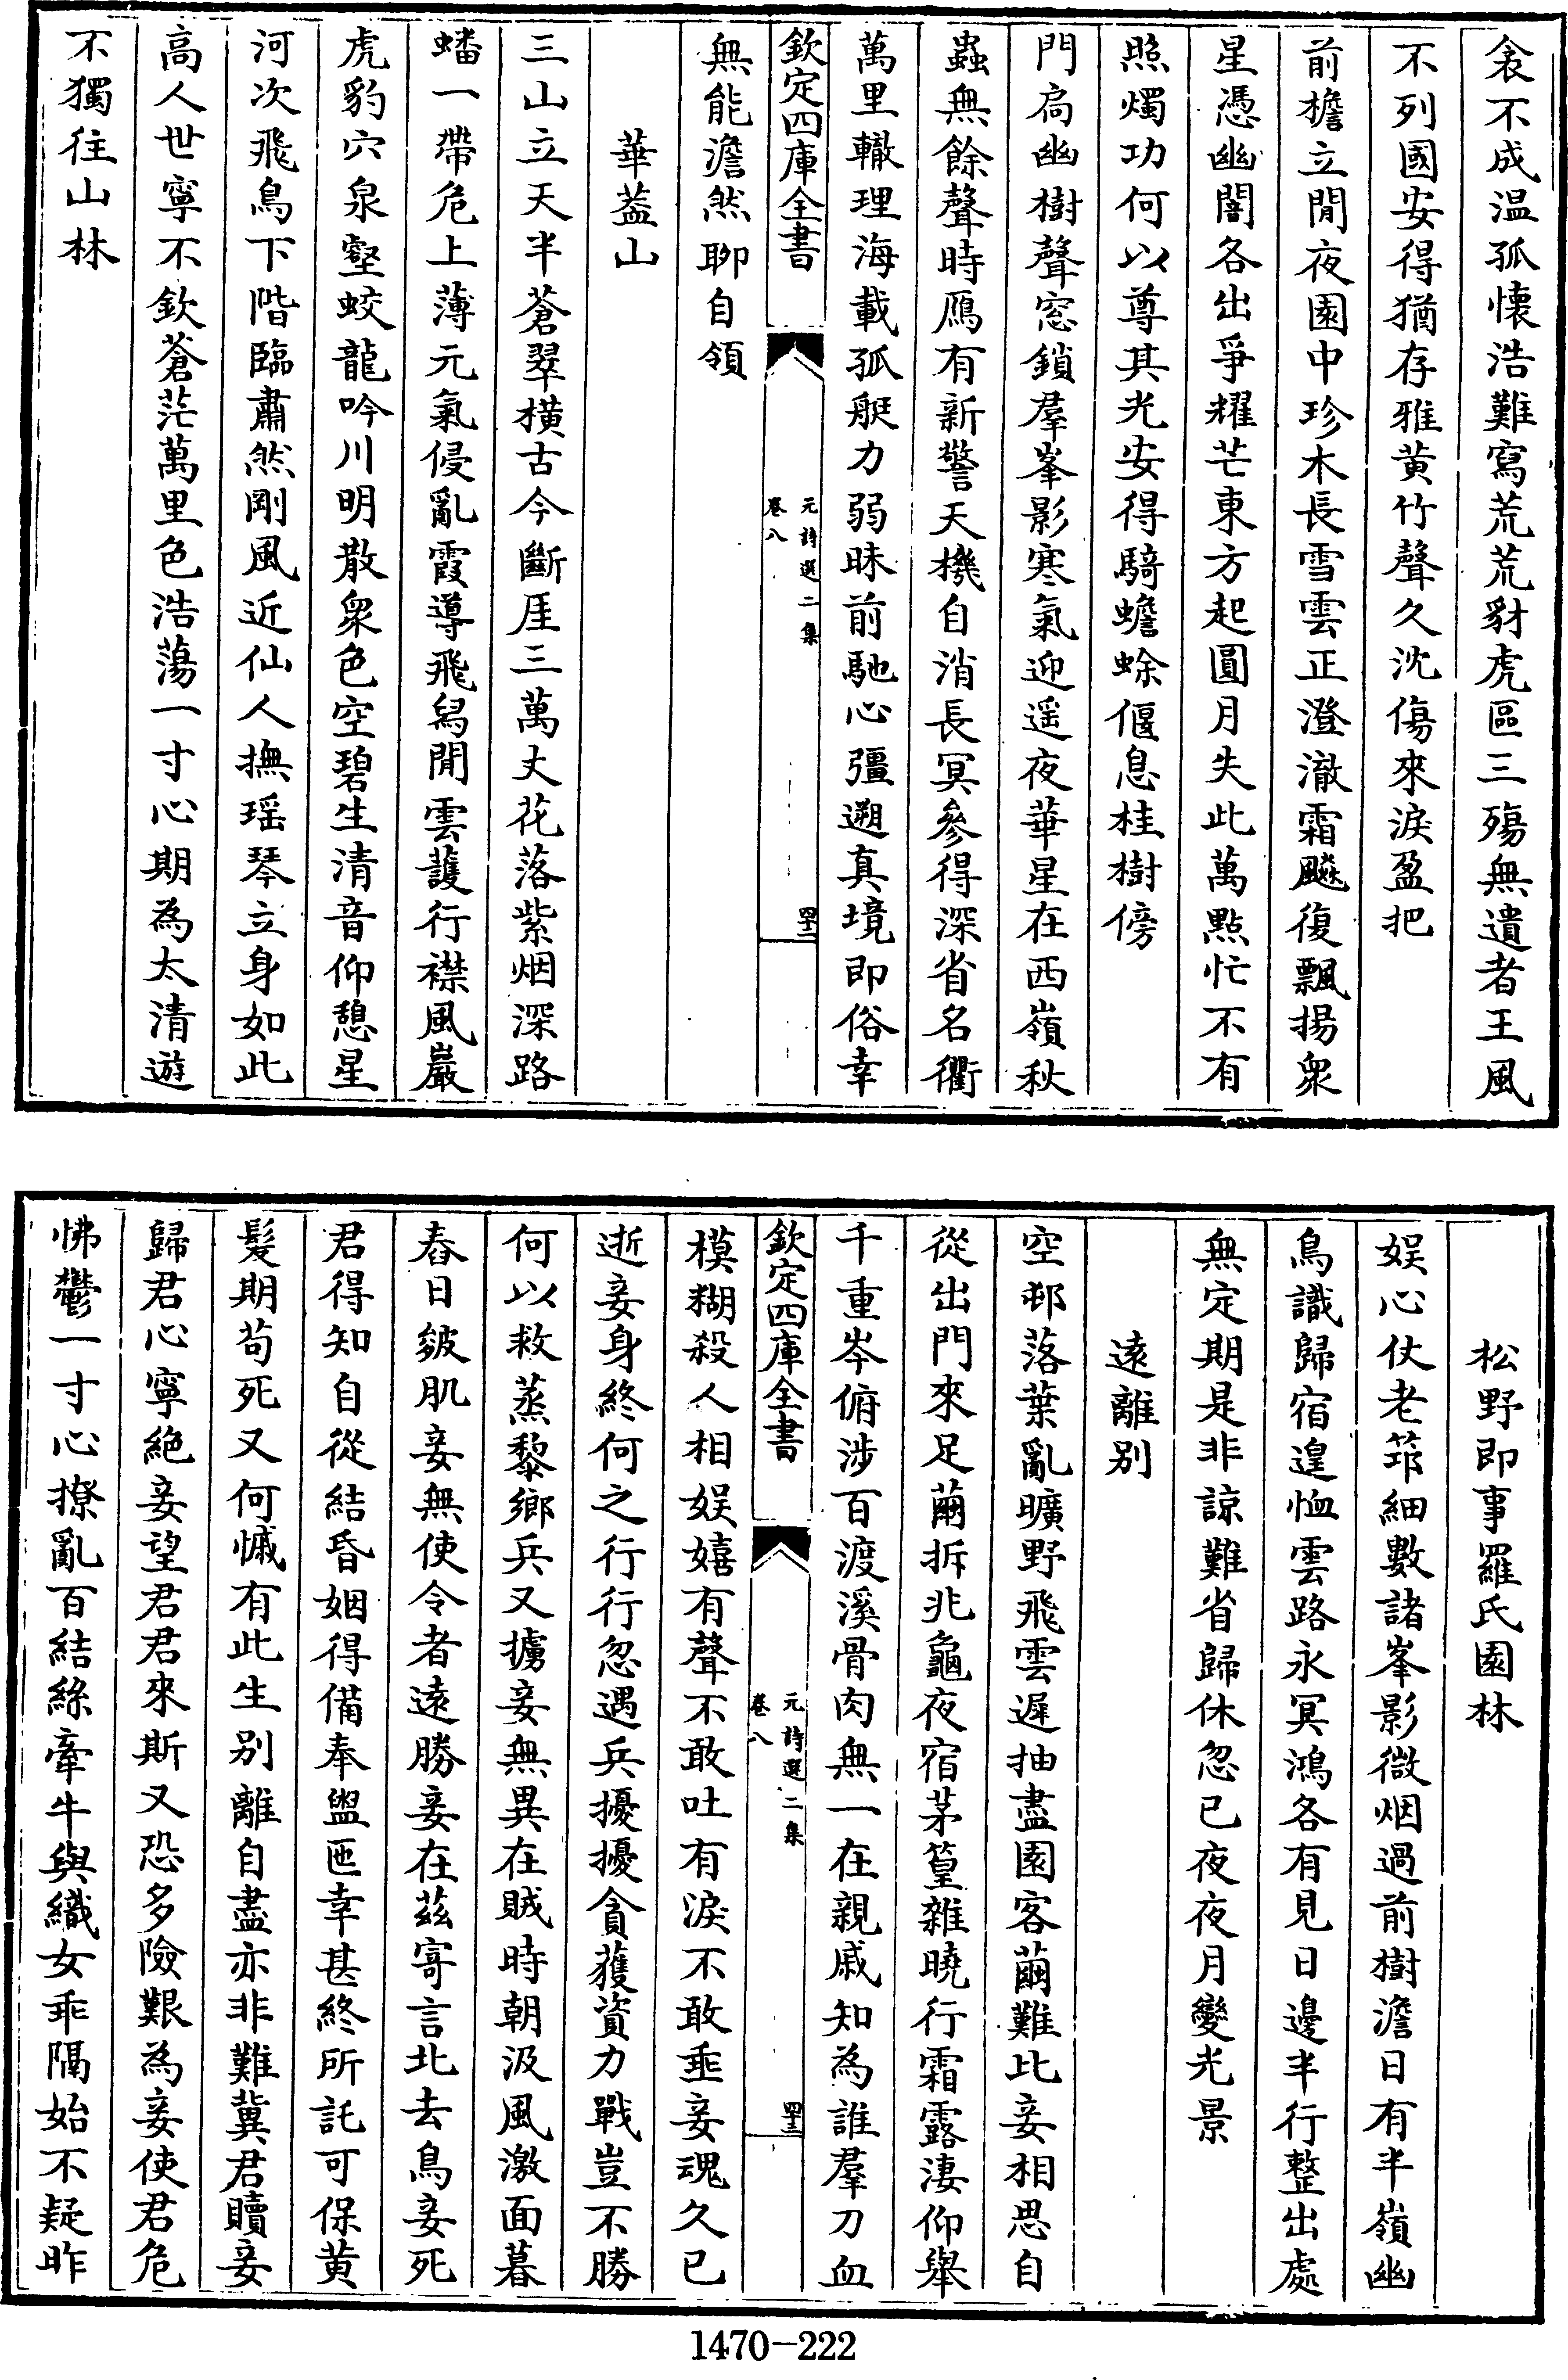 衾不成温孤懐浩難寫荒荒豺虎區三殤無遺者王風
不列國安得猶存雅黄竹聲久沈傷來淚盈把
前檐立閒夜園中珍木長雪雲正澄澈霜飇復飄揚衆
星憑幽闇各出爭耀芒東方起圓月失此萬點忙不有
照燭功何以尊其光安得騎蟾蜍偃息桂樹傍
門扃幽樹聲窓鎖羣峯影寒氣迎遥夜華星在西嶺秋
蟲無餘聲時鴈有新警天機自消長冥參得深省名衢
萬里轍理海載孤艇力弱昧前馳心彊遡真境即俗幸
欽定四庫全書
元詩選二集
卷八
四十二
無能澹然聊自領
華葢山
三山立天半蒼翠横古今斷厓三萬丈花落紫烟深路
蟠一帶危上薄元氣侵亂霞導飛舄閒雲護行襟風巖
虎豹穴泉壑蛟龍吟川明散衆色空碧生清音仰憩星
河次飛鳥下階臨肅然剛風近仙人撫瑶琴立身如此
高人世寧不欽蒼茫萬里色浩蕩一寸心期為太清遊
不獨往山林
松野即事羅氏園林
娱心仗老筇細數諸峯影微烟過前樹澹日有半嶺幽
鳥識歸宿遑恤雲路永冥鴻各有見日邊半行整出處
無定期是非諒難省歸休忽已夜夜月變光景
遠離别
空邨落葉亂曠野飛雲遲抽盡園客繭難比妾相思自
從出門來足繭拆兆龜夜宿茅篁雜曉行霜露淒仰舉
千重岑俯涉百渡溪骨肉無一在親戚知為誰羣刀血
欽定四庫全書
元詩選二集
卷八
四十三
模糊殺人相娱嬉有聲不敢吐有淚不敢垂妾魂久已
逝妾身終何之行行忽遇兵擾擾貪獲資力戰豈不勝
何以救蒸黎鄉兵又擄妾無異在賊時朝汲風激面暮
舂日皴肌妾無使令者遠勝妾在兹寄言北去鳥妾死
君得知自從結昏姻得備奉盥匜幸甚終所託可保黄
髮期苟死又何慽有此生别離自盡亦非難冀君贖妾
歸君心寧絶妾望君君來斯又恐多險艱為妾使君危
怫鬱一寸心撩亂百結絲牽牛與織女乖隔始不疑昨
1470-222